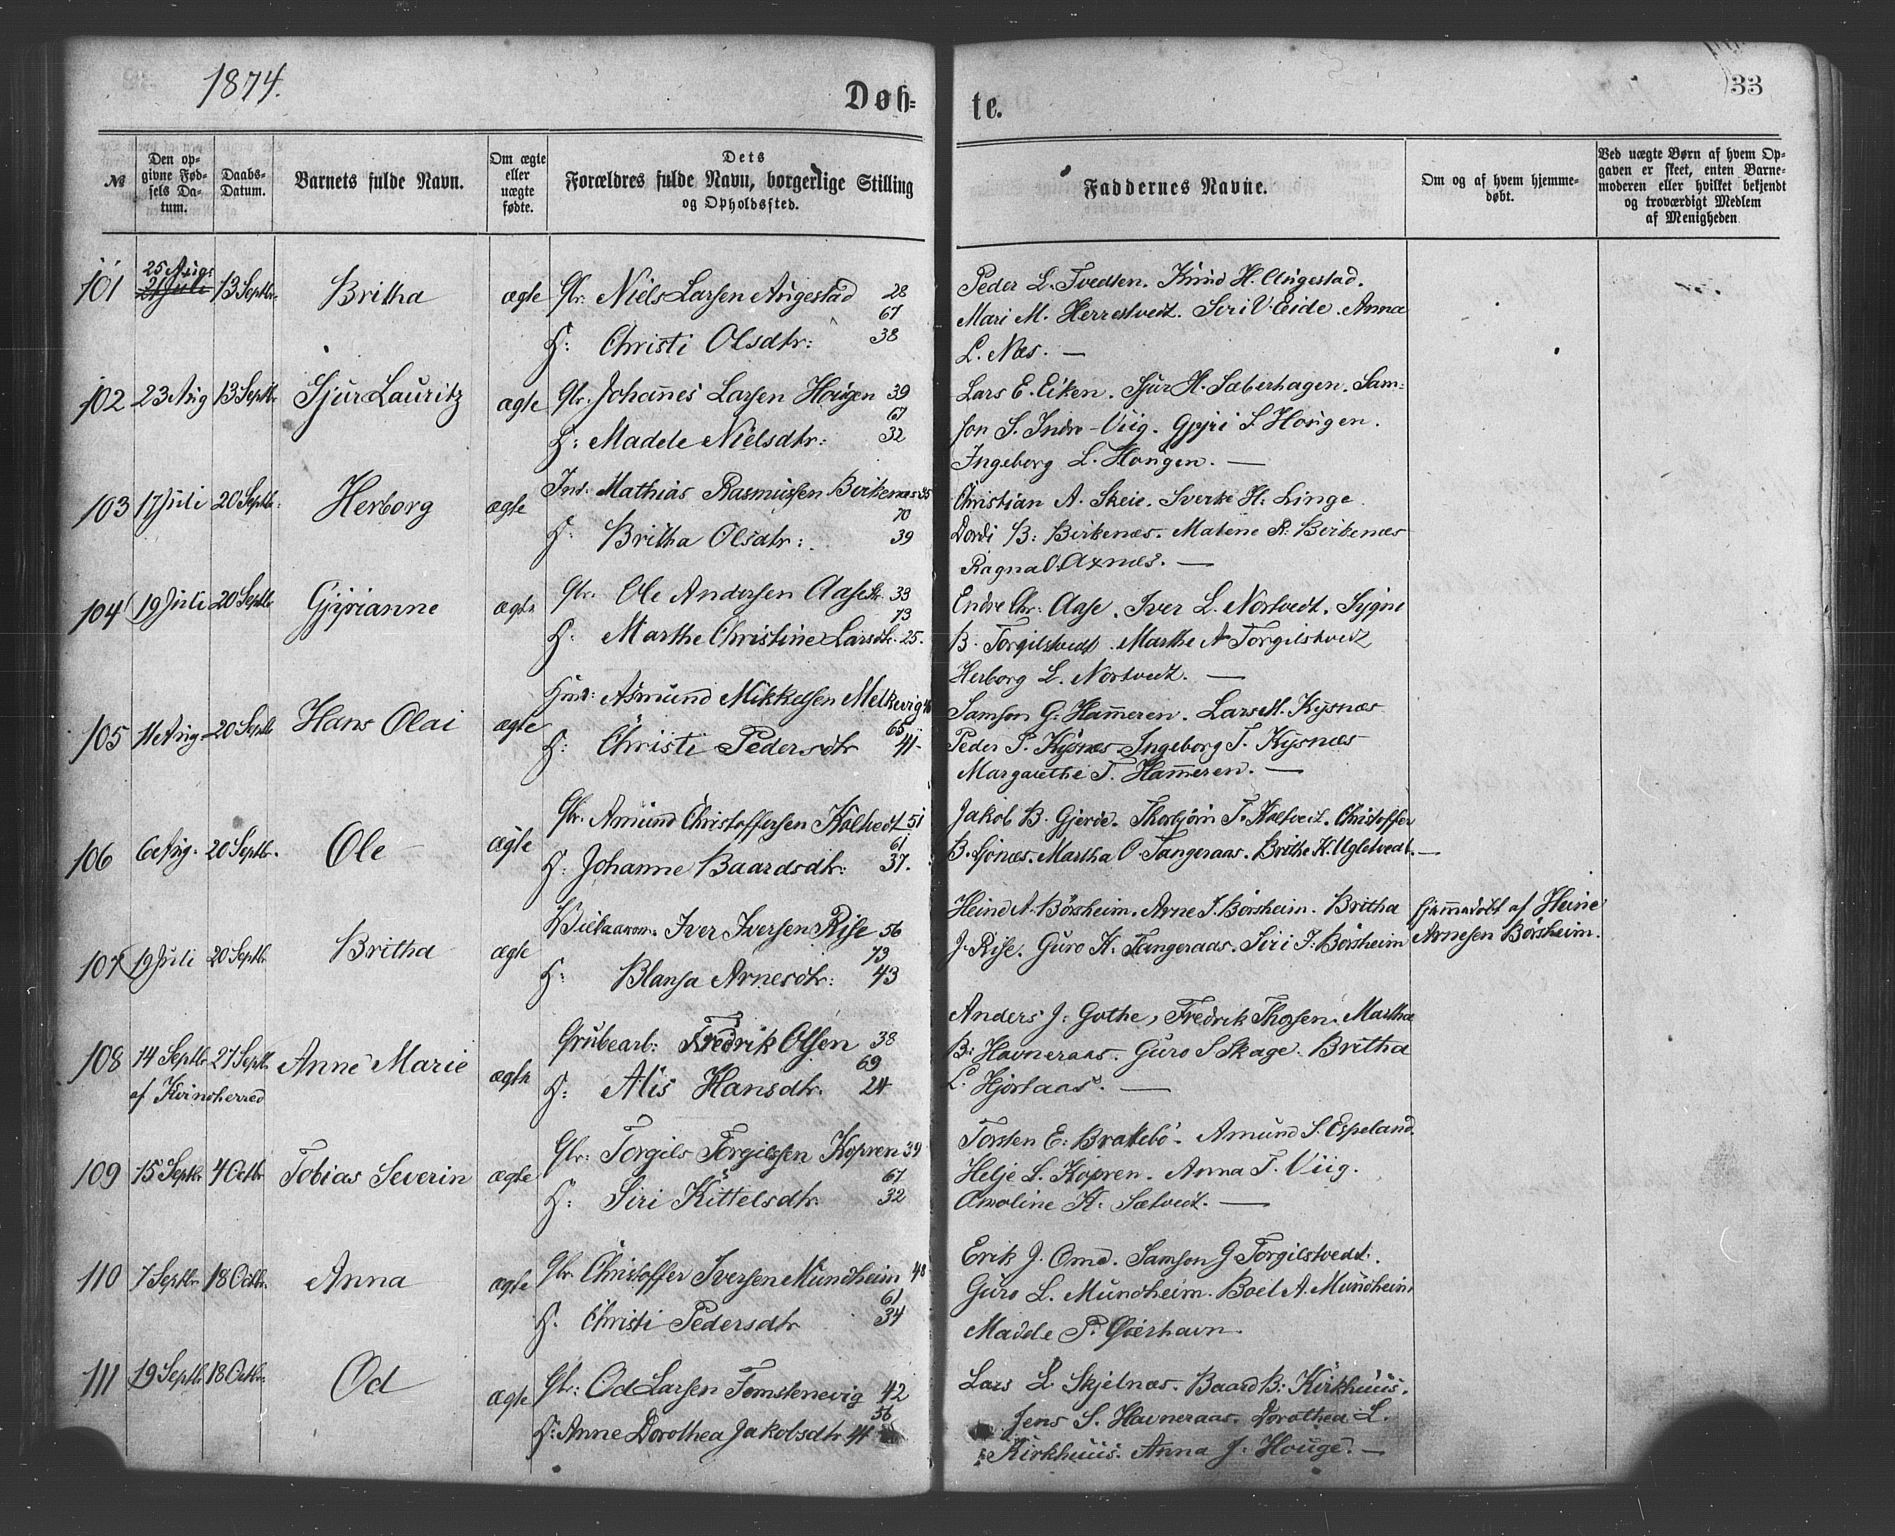 1874.
Døb-
te.
33
№
Den op-
givne Fød-
sels Da-
tum.
Daabs-
Datum.
Barnets fulde Navn.
Om ægte
eller
uægte
fødte.
Dets
Forældres fulde Navn, borgerlige Stilling
og Opholdssted.
Faddernes Navne.
Om og af hvem hjemme-
døbt.
Ved uægte Børn af hvem Op-
gaven er skeet, enten Barne-
moderen eller hvilket bekjendt
og troværdigt Medlem
af Menigheden
101 25 Aug: 21 Juli 13 Septbr. Britha ægte Gbr: Niels Larsen Augestad 28
67
H: Christi Olsdtr: 38
Peder L. Tvedten. Knud H. Augestad.
Mari M. Herrestvedt. Siri V. Eide. Anna
L. Næs. —
102 23 Aug 13 Septbr Sjur Lauritz ægte Gbr. Johannes Larsen Hougen 39
67
H: Madele Nielsdtr: 32
Lars E. Eiken. Sjur H. Sæberhagen. Sam-
son S. Indre-Viig. Gyri S Hougen.
Ingeborg L. Hougen. —
103 17 Juli 20 Septbr. Herborg ægte Ind: Mathias Rasmussen Birkenæs 35
70
H: Britha Olsdtr: 39
Christian A. Skeie. Sverke H: Linge
Dordi B: Birkenæs. Matene R: Birkenæs
Ragna O. Axnæs. —
104 19 Juli 20 Septbr Gyrianne ægte Gbr. Ole Andersen Aase 33
73
H. Marthe Christine Larsdtr. 25.
Endre Chr: Aase. Iver L. Nortvedt. Sygni
B. Torgilstvedt. Marthe A Torgilstvedt
Herborg L. Nortvedt. —
105 11 Aug 20 Septbr Hans Olai ægte Huusm: Asmund Mikkelsen Melkevig
65
H: Christi Pedersdtr 41.
Samson G. Hammeren. Lars M. Kysnæs
Peder S. Kysnæs Ingeborg T. Kysnæs
Margrethe T. Hammeren. —
106 6 Aug. 20 Septbr. Ole ægte Gbr. Amund Christoffersen Kaltvedt 51
61
H: Johanne Baardsdtr: 37.
Jakob B. Gjerde. Thorbjørn T. Kaltvedt. Christoffer
B. Sjonæs. Martha O Tangeraas. Brithe K. Ugletvedt. —
107 19 Juli 20 Septbr. Britha ægte Iver Iversen Rise 56
73
H: Blansa Arnesdtr: 43
Heine A. Børsheim. Arne I. Børsheim. Britha
J. Rise. Guro H. Tangeraas. Siri I. Børsheim
Hjemmedøbt af Heine
Arnesen Børsheim.
108 14 Septbr 27 Septbr. Anne Marie ægte Grubearb: Fredrik Olsen 38
af Kvindherred
69
H: Alis Hansdtr. 24
Anders J: Gothe, Fredrik Thorsen. Martha
B: Havneraas. Guro S Skage. Britha
L. Hjortaas. —
109 15 Septbr 4 Octbr Tobias Severin ægte Gbr: Torgils Torgilssen Kopren 39
67
H: Siri Kittelsdtr. 32
Torsten E: Brakebø. Amund S. Espeland.
Helje L. Kopren. Anna T. Viig.
Omoline K. Sætvedt. —
110 7 Septbr 18 Octbr. Anna ægte Gbr Christoffer Iversen Mundheim 48
61
H. Christi Pedersdtr 34
Erik J. Omd. Samson G Torgilstvedt.
Guro L. Mundheim. Boel A. Mundheim
Madele P. Øierhavn.
111 19 Septbr 18 Octbr. Od ægte Gbr: Od Larsen Tømstenevig 42
56
H: Anne Dorothea Jakobsdtr 44
Lars L Skjelnæs. Baard B: Kirkhuus.
Jens S. Havneraas. Dorothea L.
Kirkhuus. Anna J. Houge. —